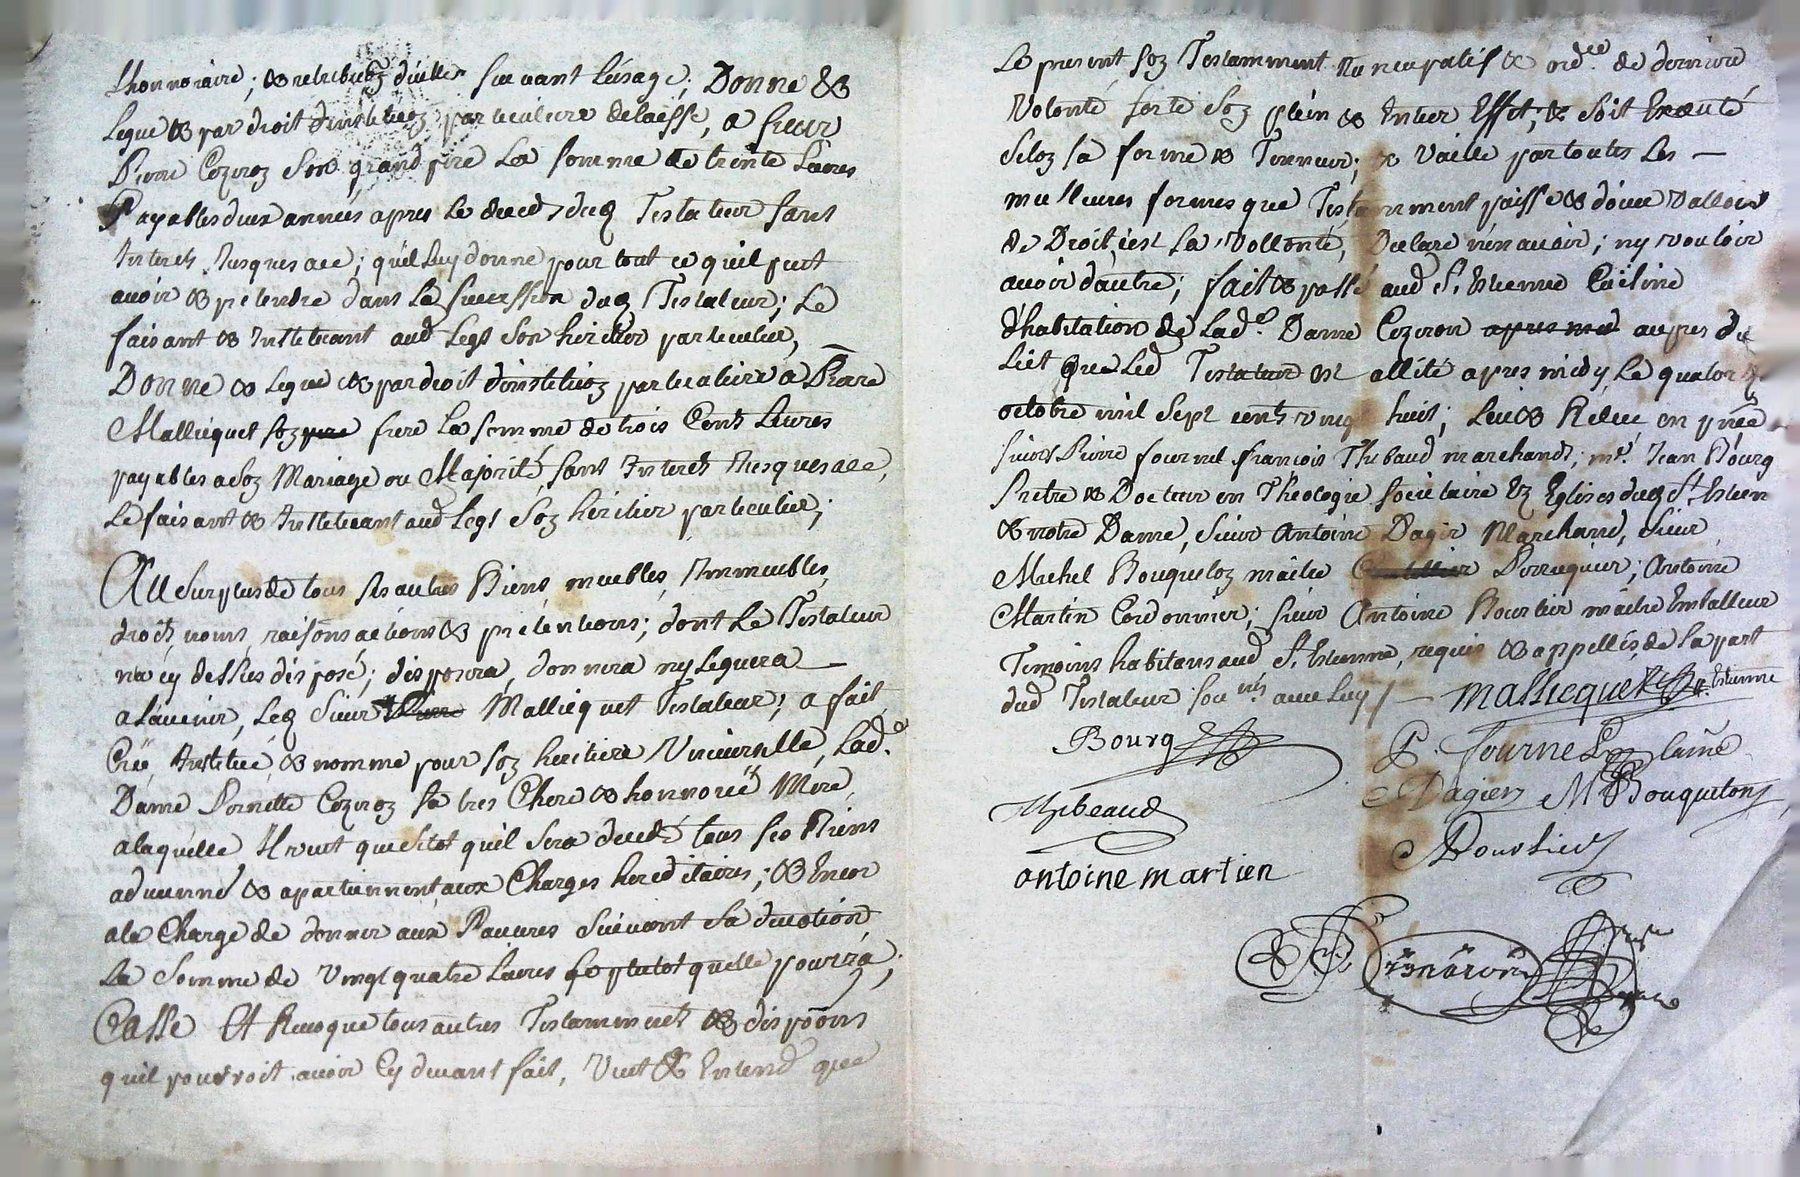 Lhonnoraire; & retribuoz dicller suivant Lusage; Donne &
Legue & par droit dinstituoz particuliere delaisse, a sieur
Pierre Cozeroz Son grand pere La somme de trente Livres
Payables deux années apres Le deceds dud Testateur sans
Interets Jusques a ce; qu'il Luy donne pour tout ce qu'il peut
avoir & pretendre dans La succession dud Testateur; Le
faisant & Instituant aud Legs Son héritier particulier,
Donne & Legue & par droit dinstitutioz particuliere a Pierre
Mallicquet soz pere frere La somme de trois Cents Livres
payables a soz Mariage ou Majorité, sans Interets Jusques a ce,
Le faisant & Instituant aud Legs Soz héritier particulier;
Au Surplus de tous ses autres Biens, meubles, Immeubles,
droits, noms, raisons actions & prétentions; dont Le Testateur
na cy dessus disposé; disposera, donnera ny Leguera —
a Lavenir, Led Sieur Pierre Mallicquet Testateur; a fait
Créé, Institué, & nomme pour soz heritiere Universelle, Lad.e
Dame Pernette Cozeroz sa tres Chere & honnorée Mere,
a laquelle Il veut que sitot qu'il sera decedé tous ses Biens
advienne & apartiennent aux Charges hereditaires; & Encor
a la Charge de donner aux Pauvres suivant Sa devotion,
La Somme de Vingt quatre Livres Le plutot quelle pourra;
Casse Et Revoque tous autres Testamments & dispõons
quil pourroit avoir Cy devant fait, Veut & Entend que
Le present soz Testamment Nuncupatif & ord.ce de derniere
Volonté sorte Soz plein & Entier Effet; & Soit Executé
Seloz sa forme & Tenneur; & Vaille par toutes Les —
meilleures formes que Testamment puisse & doive Valloir
de Droit, cest Sa Vollonté, Declare n'en avoir; ny vouloir
avoir d'autre; fait & passé aud St. Etienne Cuisine
d'habitation de Lad.e Dame Cozeron apres mid aupres du
Liet que Led Testateur est allité apres midy Le quatorze
octobre mil Sept cents vingt huit; Leu & Releu en p̃nce
sieurs Pierre fournel francois Thibaud marchands; m.e Jean Bourg
Prêtre & Docteur en Théologie societaire Ez Eglises dud St. Estien
& notre Dame, Sieur Antoine Dagier Marchand, Sieur
Michel Bouquetoz maître Perruquier; Antoine
Martin Cordonnier; sieur Antoine Bourlier maitre Emballeur
Temoins habitans aud St. Estienne, requis & appellés de La part
dud Testateur sou.nés avec Luy / — Mallicquet St. Estienne
Bourg P. Fournel Laîné
Thibeaud Dagier M Bouqueton
ABourlier
antoine martien